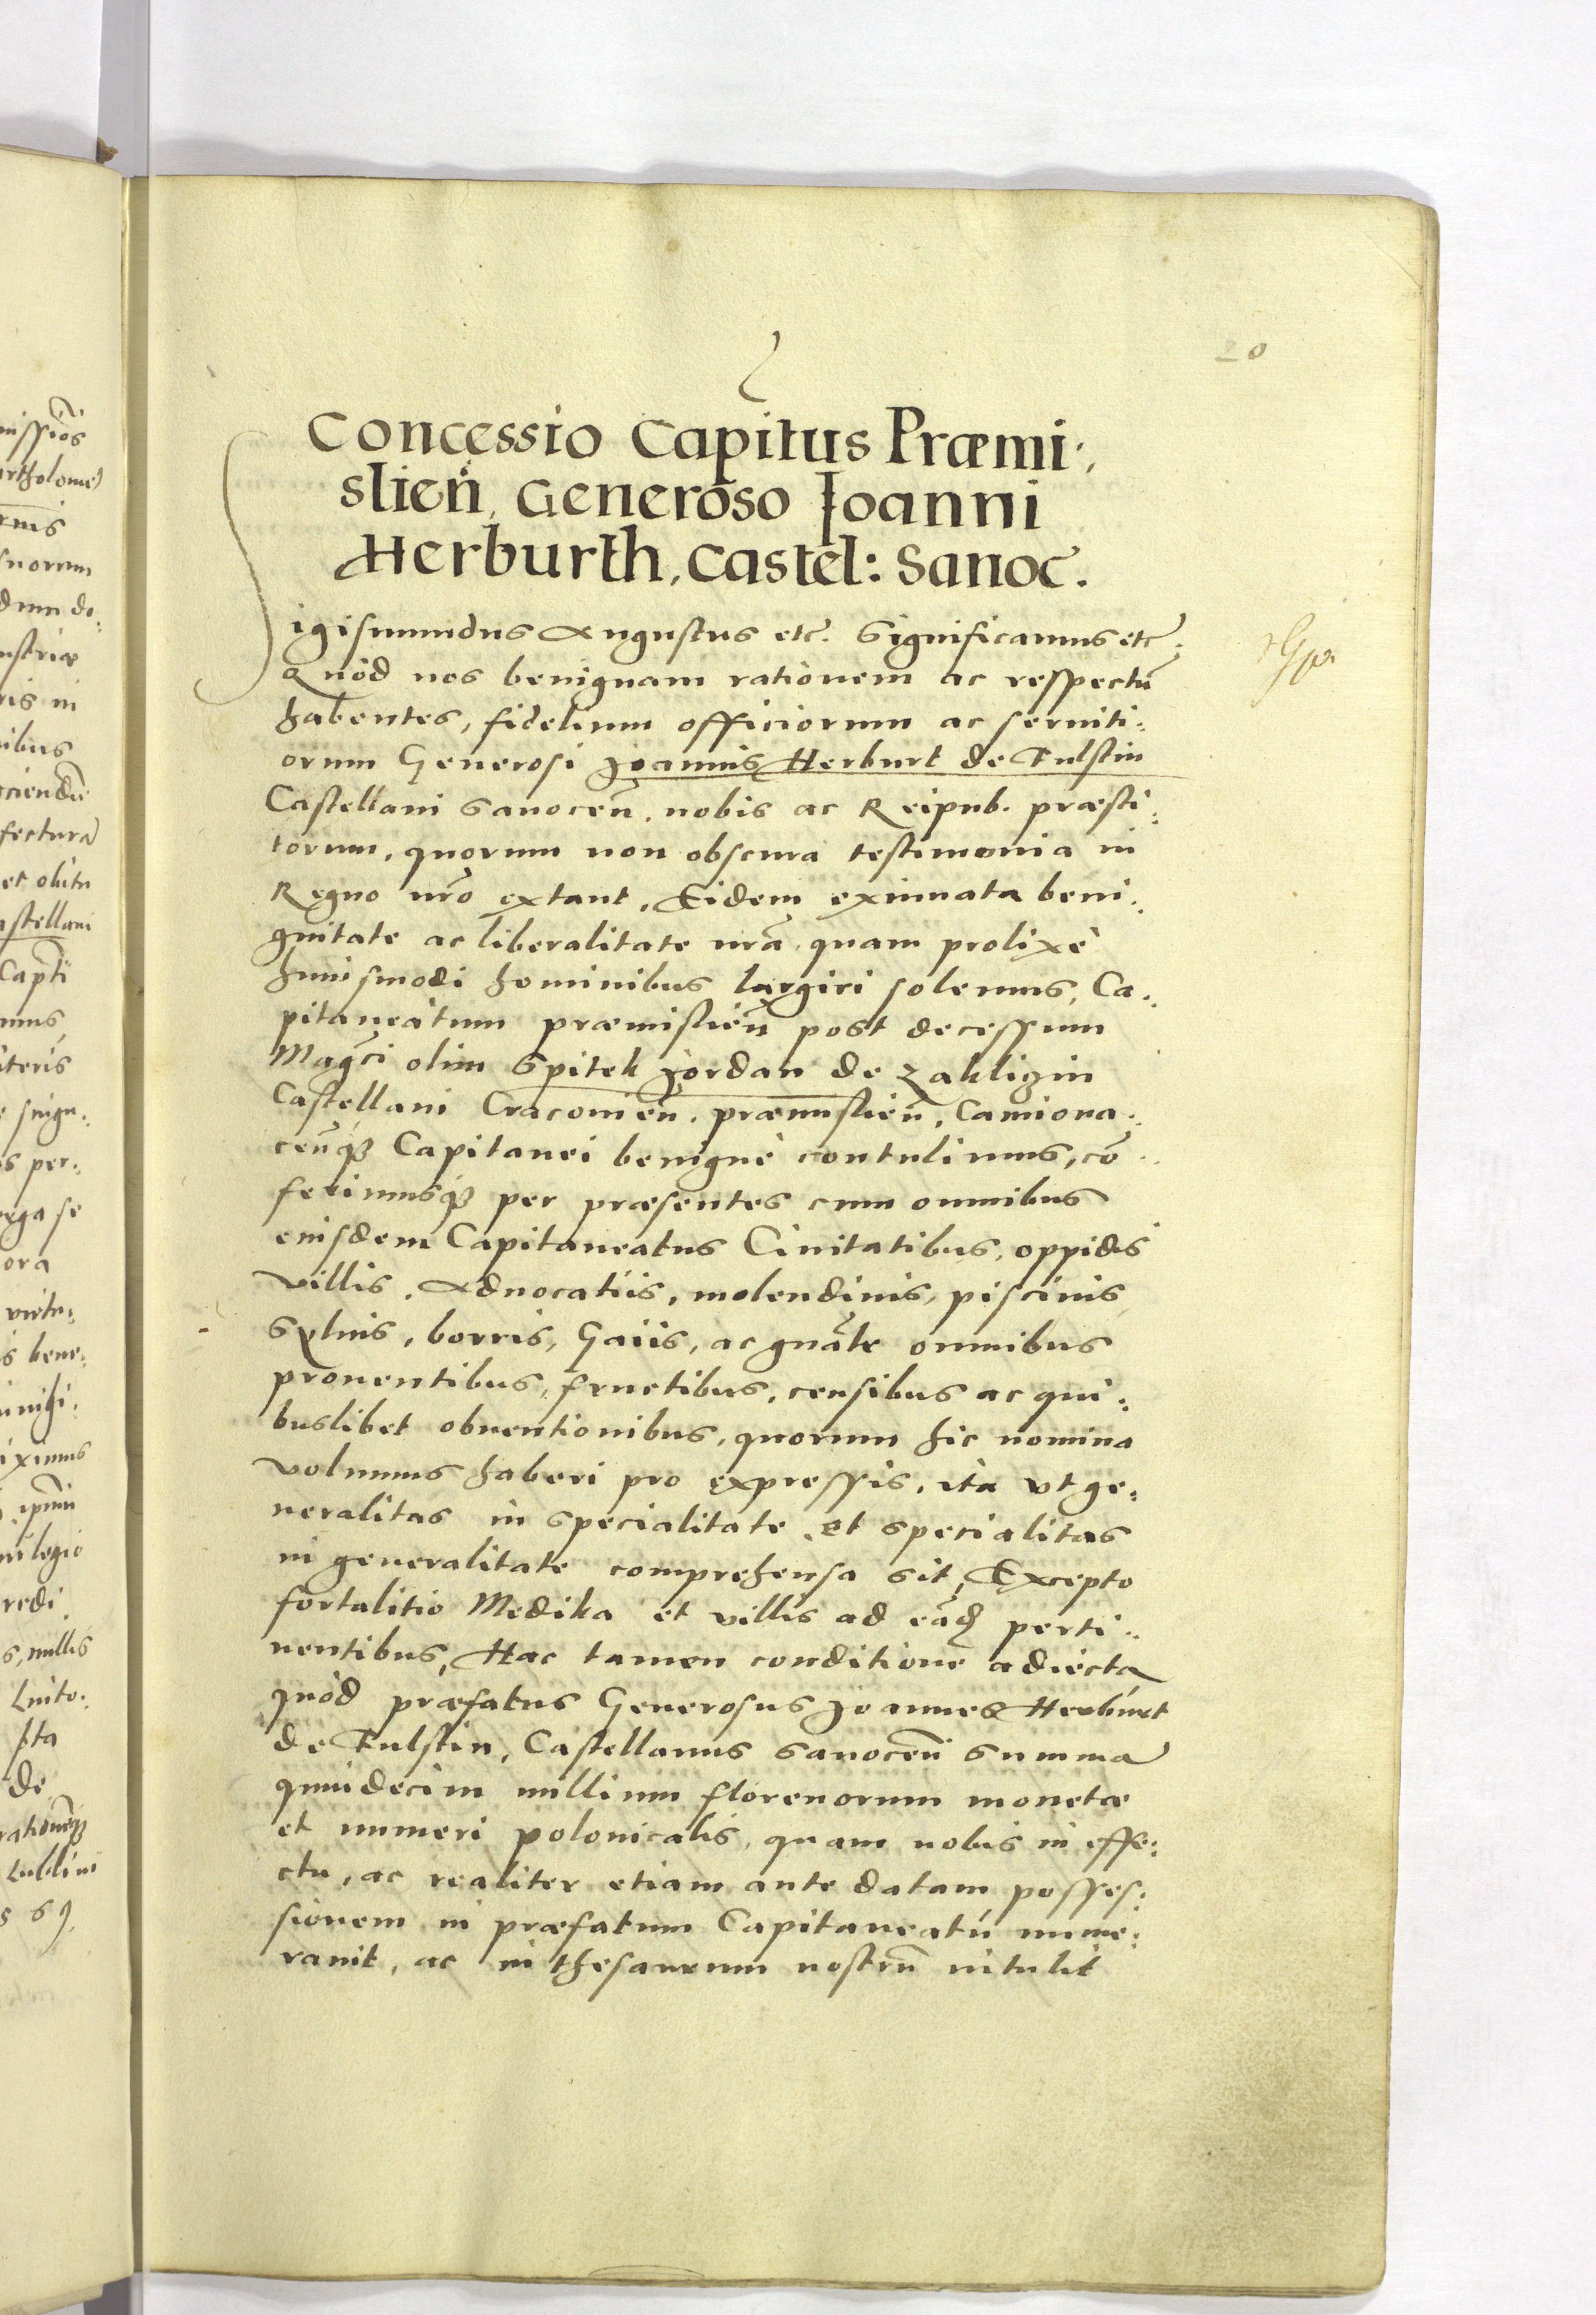 20
Concessio Capitus Præmi:
slien̄, Generoso Joanni
Herburth, Castel: Sanoc.
Sigismundus Augustus etc. Significamus etc.
Quòd nos benignam rationem ac respectū
habentes, fidelium officiorum ac seruiti:
orum Generosi Joannis Herburt de Fulstin
Castellani Sanocen̄. nobis ac Reipub. præsti:
torum, quorum non obscura testimonia in
Regno nr̄o extant, Eidem ex innata beni:
gnitate ac liberalitate nr̄a, quam prolixè
huiusmodi hominibus largiri solemus, Ca:
pitaneatum præmislien̄ post decessum
Mag̃ci olim Spitek Jordan de Zakliczin
Castellani Cracouien̄. præmislien̄, Camiona:
cen̄q3 Capitanei benignè contulimus, cō:
ferimusq3 per præsentes cum omnibus
eiusdem Capitaneatus Ciuitatibus, oppidis
villis, Aduocatiis, molendinis, piscinis,
Syluis, borris, Gaiis, ac gn̄alr omnibus
prouentibus, fructibus, censibus ac qui:
buslibet obuentionibus, quorum hic nomina
volumus haberi pro expressis, ita vt ge:
neralitas in specialitate, et specialitas
in generalitate comprehensa sit, Excepto
fortalitio Medika et villis ad eād perti:
nentibus, Hac tamen conditione adiecta
quòd præfatus Generosus Joannes Herburt
de Fulstin, Castellanus Sanocen̄ summa
quindecim millium florenorum monetæ
et numeri polonicalis, quam nobis in effe:
ctu, ac realiter etiam ante datam posses:
sionem in præfatum Capitaneatū nume:
rauit, ac in thesaurum nostrū intulit